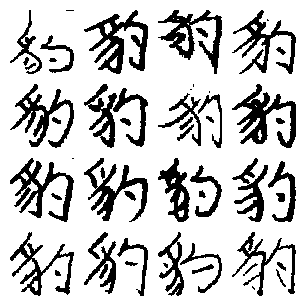 豹豹豹豹
豹豹豹豹
豹豹豹豹
豹豹豹豹